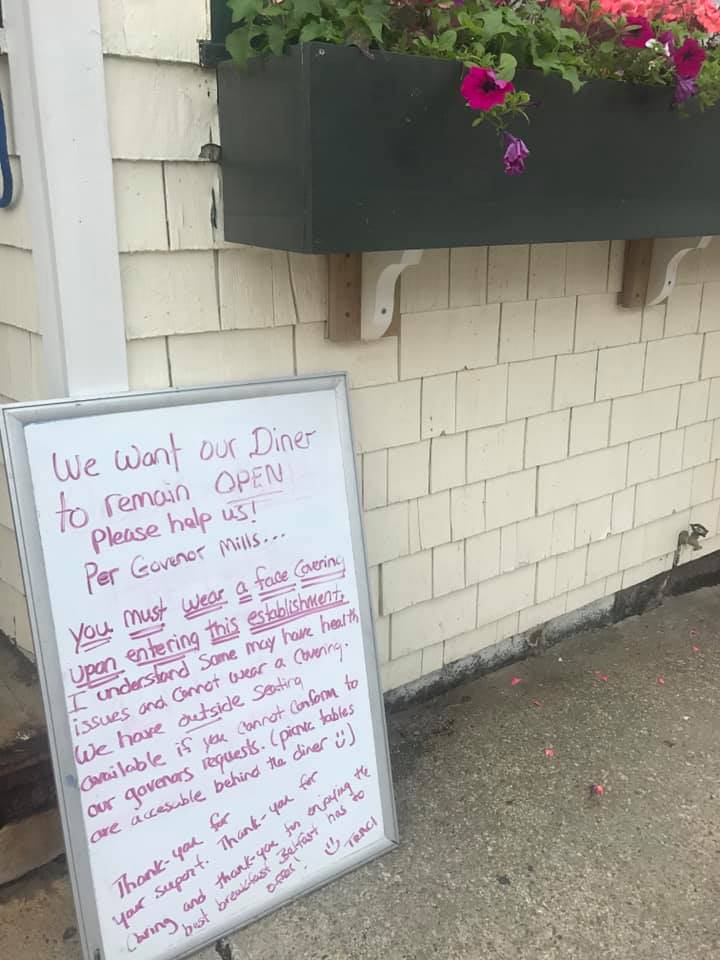 We want our Diner
to remain OPEN
Please help us!
Per Govenor Mills...
You must wear a face covering
upon entering this establishment.
I understand some may have health
issues and cannot wear a covering.
We have outside seating
available if you cannot conform to
our govenors requests. (picnic tables
are accesable behind the diner :))
Thank-you for
your support. Thank-you for
caring and thank-you for enjoying the
best breakfast Belfast has to
offer!
:) Terci